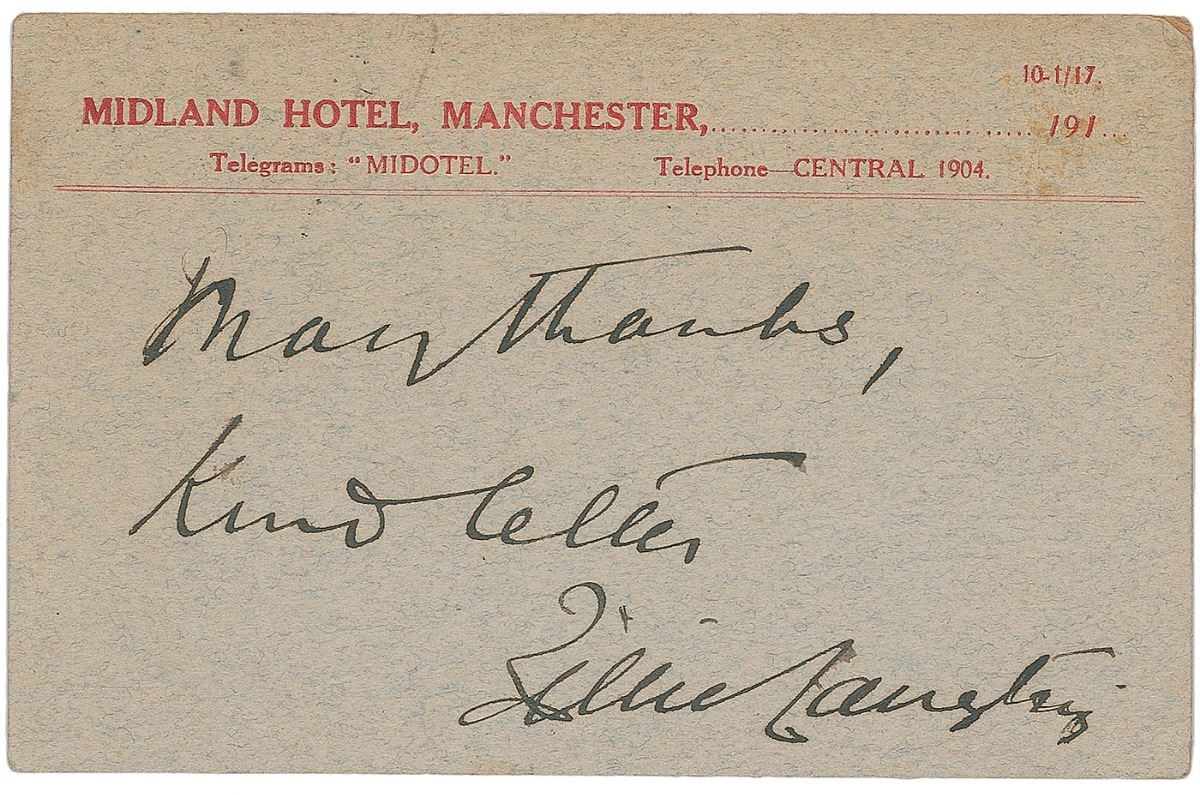 10-1/17.
MIDLAND HOTEL, MANCHESTER,.................................191...
Telegrams: "MIDOTEL." Telephone—CENTRAL 1904.
Many thanks,
Kind letter
Lillie Langtry